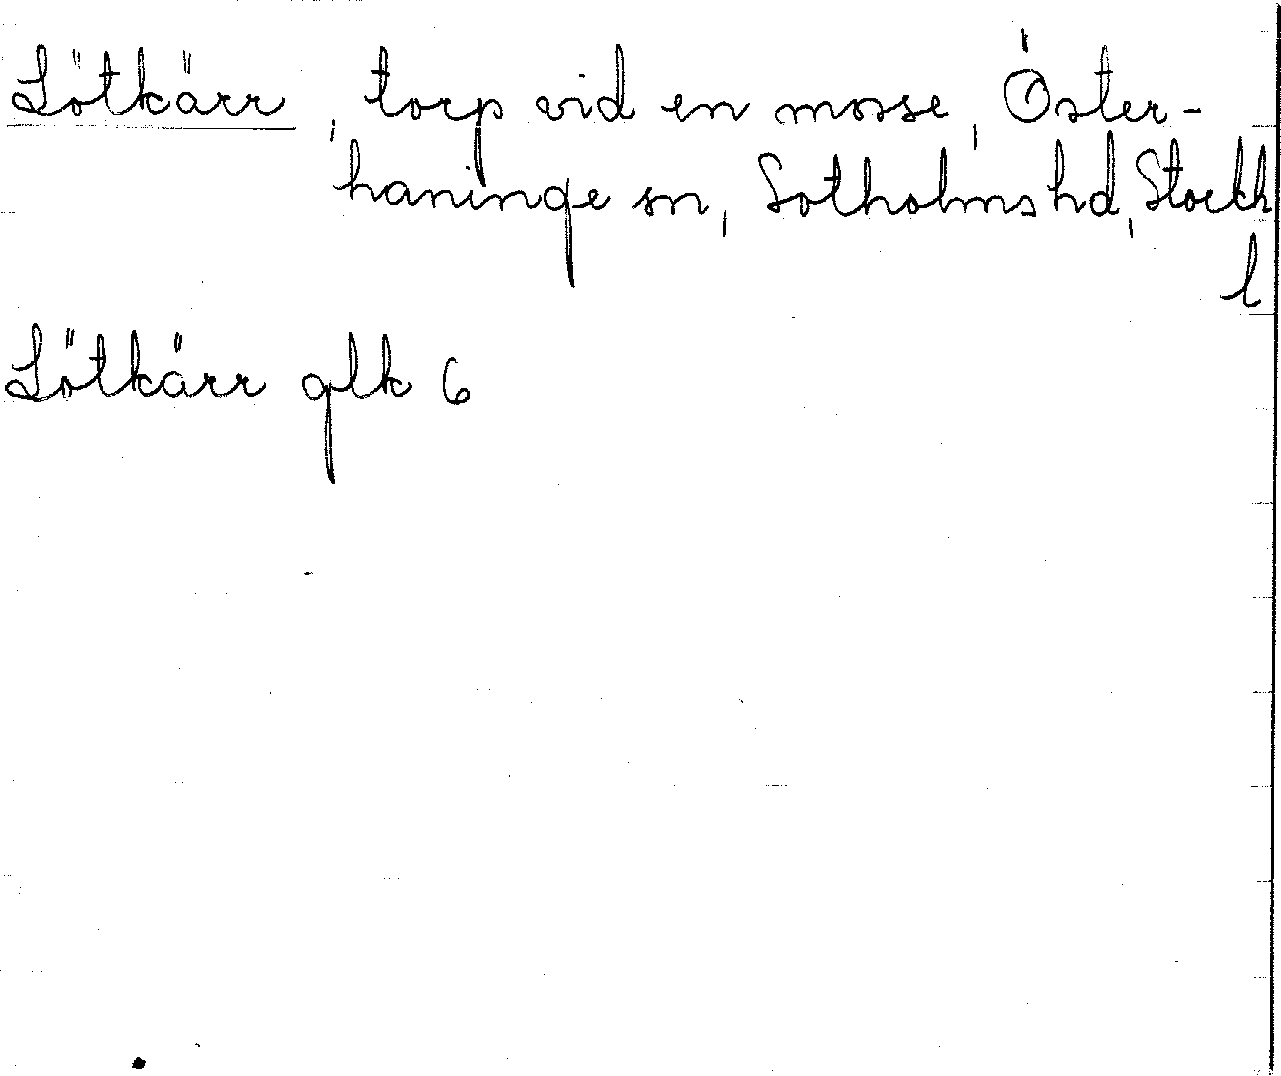 Lötkärr, torp vid en mosse, Öster-
haninge sn, Sotholms hd, Stockh
l
Lötkärr glk 6